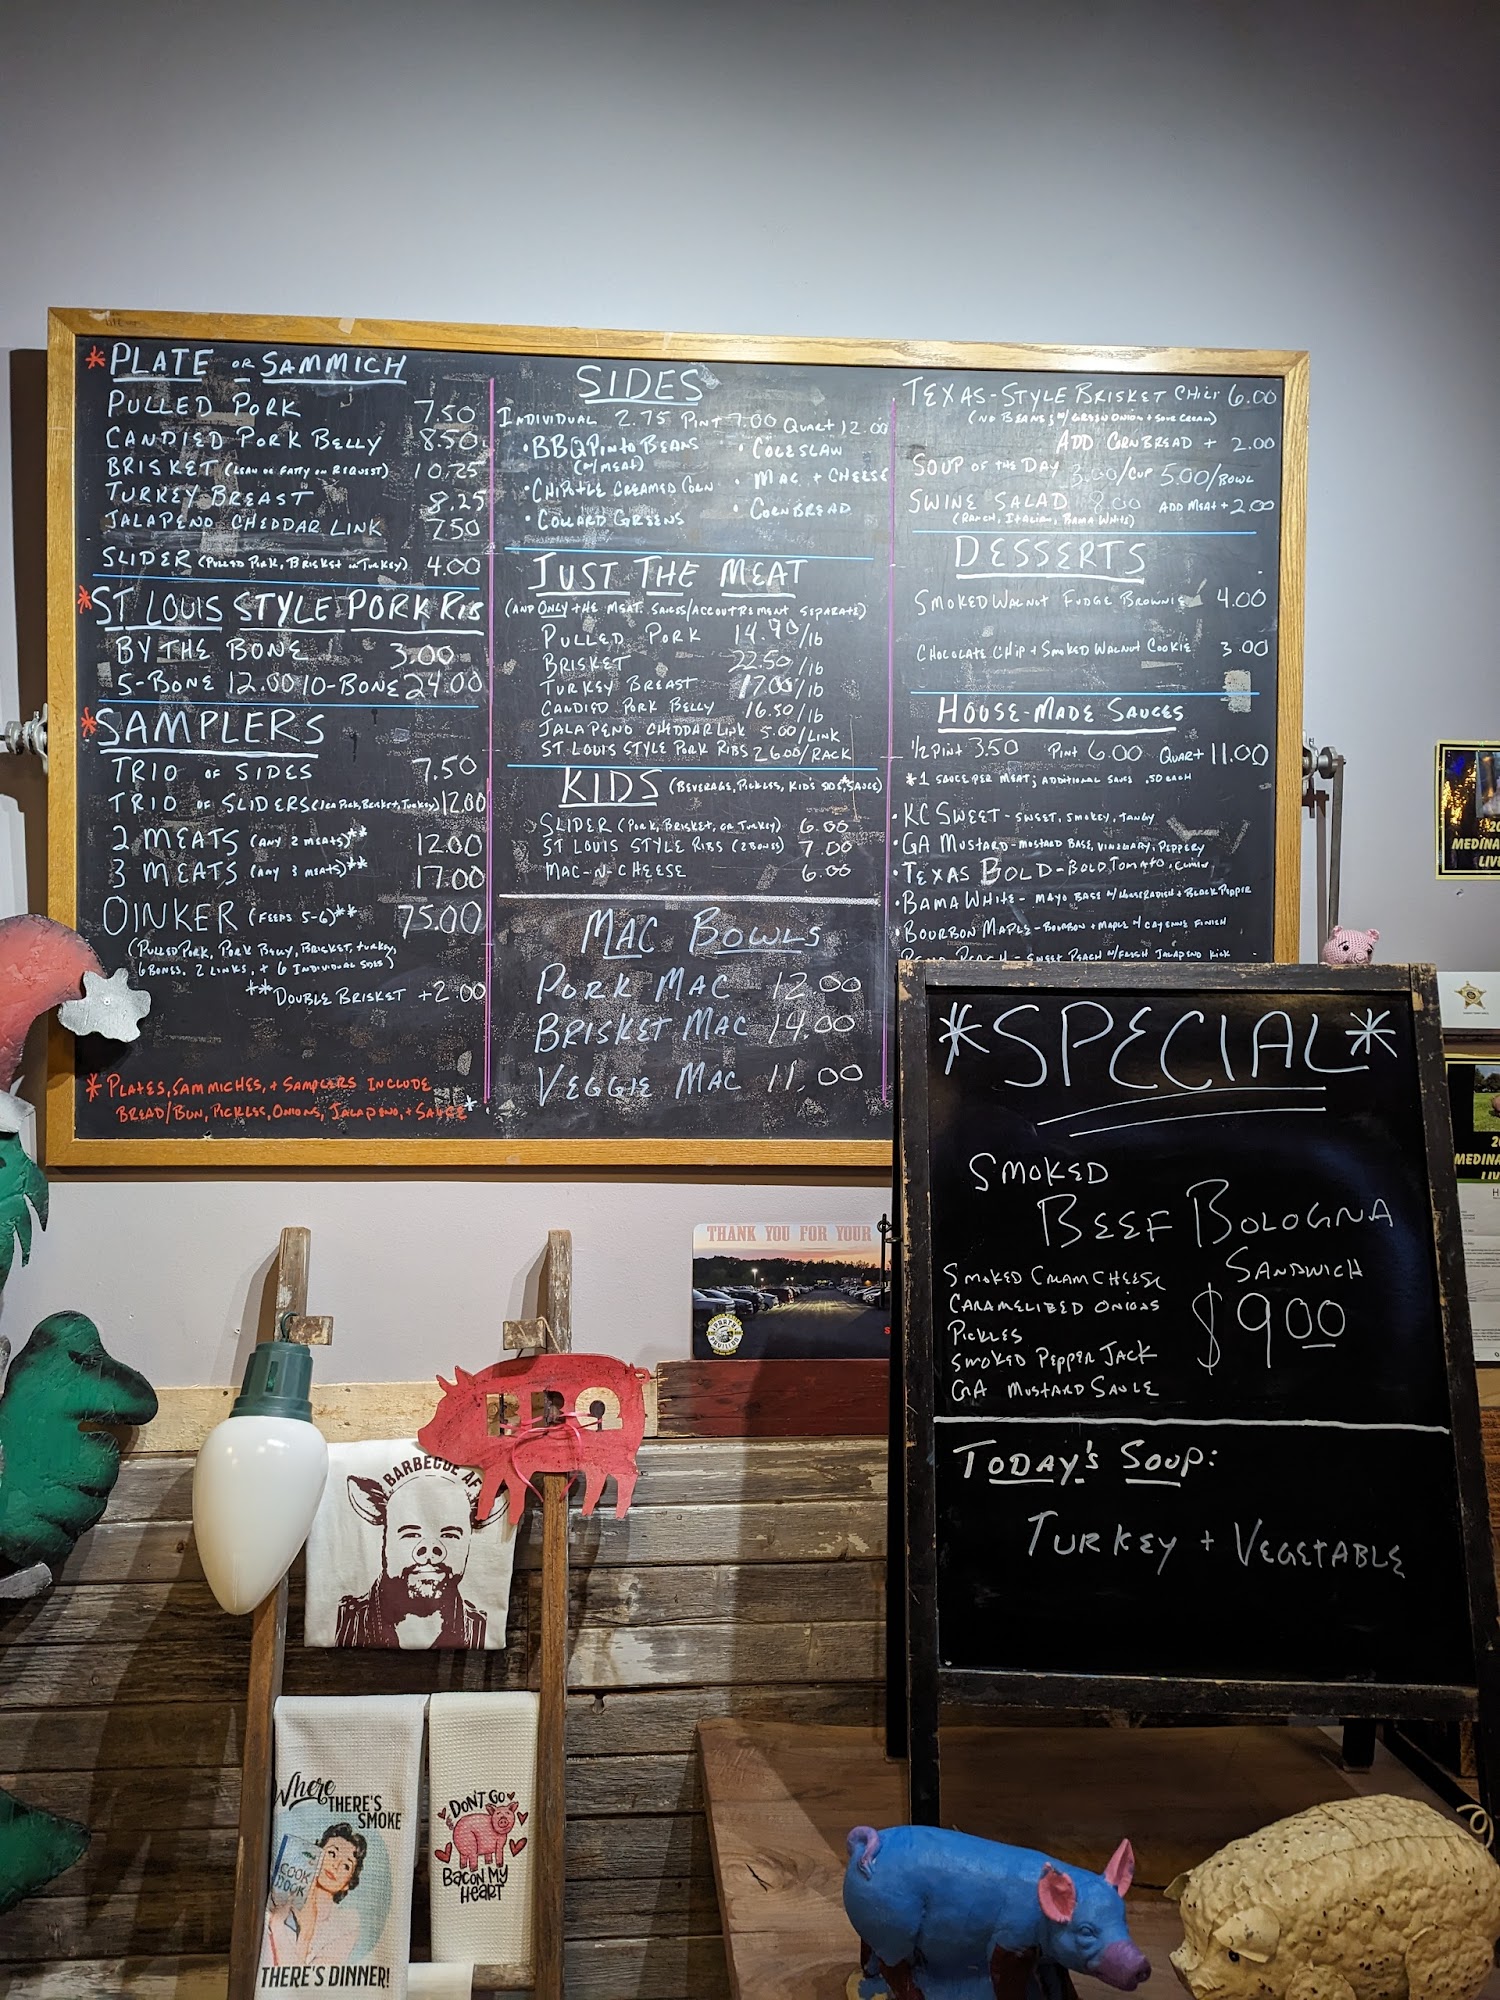 * PLATE OR SAMMICH
PULLED PORK 7.50
CANDIED PORK BELLY 8.50
BRISKET (LEAN OR FATTY ON REQUEST) 10.25
TURKEY BREAST 8.25
JALAPENO CHEDDAR LINK 7.50
SLIDER (PULLED PORK, BRISKET OR TURKEY) 4.00
* ST LOUIS STYLE PORK RIB
BY THE BONE 3.00
5-BONE 12.00 10-BONE 24.00
* SAMPLERS
TRIO OF SIDES 7.50
TRIO OF SLIDERS (1 EA PORK, BRISKET, TURKEY) 12.00
2 MEATS (ANY 2 MEATS)** 12.00
3 MEATS (ANY 3 MEATS)** 17.00
OINKER (FEEDS 5-6)** 75.00
(PULLED PORK, PORK BELLY, BRISKET, TURKEY,
6 BONES, 2 LINKS, + 6 INDIVIDUAL SIDES)
**DOUBLE BRISKET +2.00
* PLATES, SAMMICHES, + SAMPLERS INCLUDE
BREAD/BUN, PICKLES, ONIONS, JALAPENO, + SAUCE*
SIDES
INDIVIDUAL 2.75 PINT 7.00 QUART 12.00
• BBQ PINTO BEANS
(W/MEAT)
• CHIPOTLE CREAMED CORN
• COLLARD GREENS
• COLESLAW
• MAC + CHEESE
• CORNBREAD
JUST THE MEAT
(AND ONLY THE MEAT. SAUCES/ACCOUTREMENT SEPARATE)
PULLED PORK 14.90/lb
BRISKET 22.50/lb
TURKEY BREAST 17.00/lb
CANDIED PORK BELLY 16.50/lb
JALAPENO CHEDDAR LINK 5.00/LINK
ST. LOUIS STYLE PORK RIBS 26.00/RACK
KIDS (BEVERAGE, PICKLES, KIDS SIDE, SAUCE)
SLIDER (PORK, BRISKET, OR TURKEY) 6.00
ST LOUIS STYLE RIBS (2 BONES) 7.00
MAC-N-CHEESE 6.00
MAC BOWLS
PORK MAC 12.00
BRISKET MAC 14.00
VEGGIE MAC 11.00
TEXAS-STYLE BRISKET CHILI 6.00
(NO BEANS; W/GREEN ONION + SOUR CREAM)
ADD CORNBREAD + 2.00
SOUP OF THE DAY 3.00/CUP 5.00/BOWL
SWINE SALAD 8.00 ADD MEAT + 2.00
(RANCH, ITALIAN, BAMA WHITE)
DESSERTS
SMOKED WALNUT FUDGE BROWNIE 4.00
CHOCOLATE CHIP + SMOKED WALNUT COOKIE 3.00
HOUSE-MADE SAUCES
1/2 PINT 3.50 PINT 6.00 QUART 11.00
*1 SAUCE PER MEAT; ADDITIONAL SAUCES .50 EACH
• KC SWEET - SWEET, SMOKEY, TANGY
• GA MUSTARD - MUSTARD BASE, VINEGARY, PEPPERY
• TEXAS BOLD - BOLD TOMATO, CUMIN
• BAMA WHITE - MAYO BASE W/HORSERADISH + BLACK PEPPER
• BOURBON MAPLE - BOURBON + MAPLE W CAYENNE FINISH
PEACH - SWEET PEACH W/FRESH JALAPENO KICK
*SPECIAL*
SMOKED
BEEF BOLOGNA
SANDWICH
$9.00
SMOKED CREAM CHEESE
CARAMELIZED ONIONS
PICKLES
SMOKED PEPPER JACK
GA MUSTARD SAUCE
TODAY'S SOUP:
TURKEY + VEGETABLE
THANK YOU FOR YOUR
PARTY
PAVILION
BBQ
BARBECUE AF
Where
THERE'S
SMOKE
COOK
BOOK
THERE'S DINNER!
DON'T GO
BACON MY
HEART
20
MEDINA
LIVE
20
MEDINA
LIV